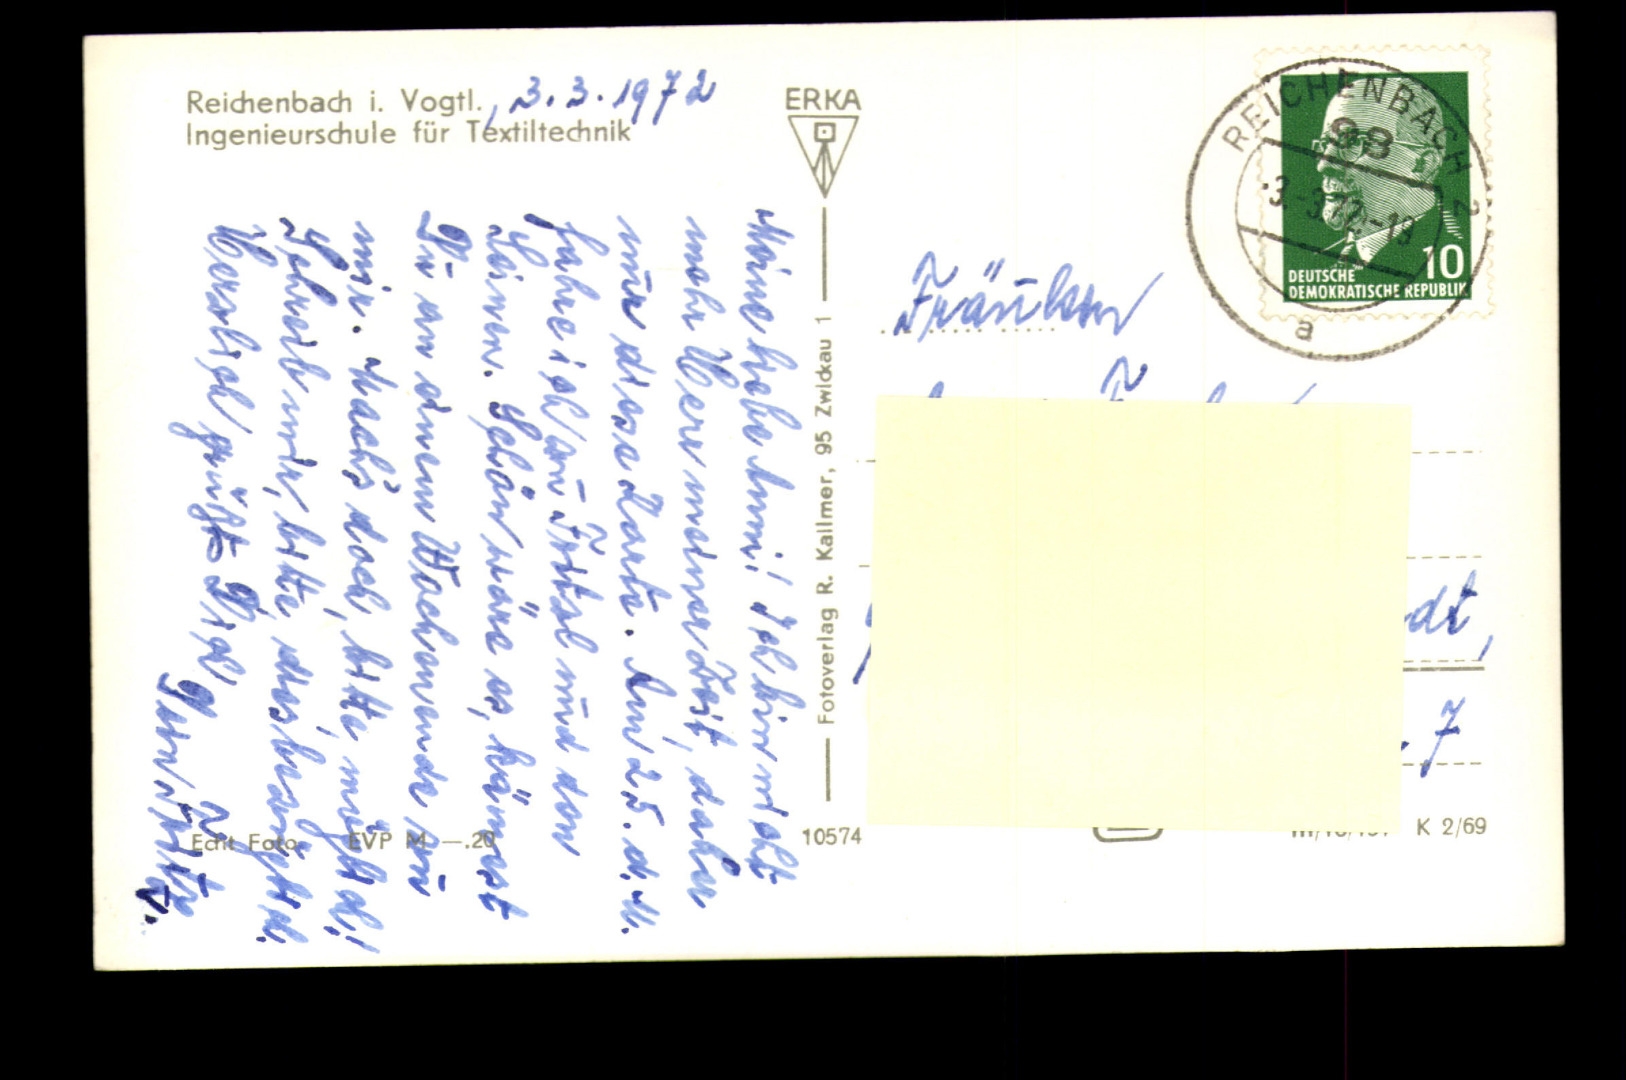 Reichenbach i. Vogtl., 3.3.1972
Ingenieurschule für Textiltechnik
Meine liebe Anni! Ich bin nicht
mehr Herr meiner Zeit, daher
nur diese Karte. Am 25. d. M.
fahre ich zu
Schön wäre es, kämest
Du an einem Wochenende zu
mir. Mach's doch, bitte, möglich!
Schreib mir, bitte, diesbezüglich.
Herzlich grüßt Dich
Dein Fritz
Echt Foto EVP M —.20
ERKA
Fotoverlag R. Kallmer, 95 Zwickau 1
10574
REICHENBACH 2
98
-3.-3.72.-19
a
10
DEUTSCHE
DEMOKRATISCHE REPUBLIK
Fräulein
dt,
. 7
K 2/69